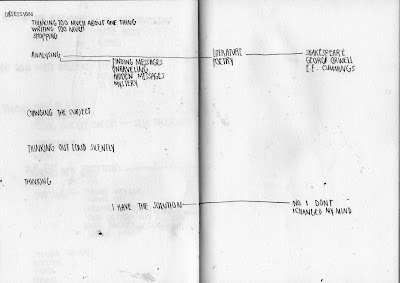 OBSESSION
THINKING TOO MUCH ABOUT ONE THING
WRITING TOO MUCH
SHOPPING
ANALYSING
FINDING MESSAGES
UNRAVELING
HIDDEN MESSAGES
MYSTERY
LITERATURE
POETRY
SHAKESPEARE
GEORGE ORWELL
E.E. CUMMINGS
CHANGING THE SUBJECT
THINKING OUT LOUD SILENTLY
THINKING
I HAVE THE SOLUTION
NO I DONT
I CHANGED MY MIND